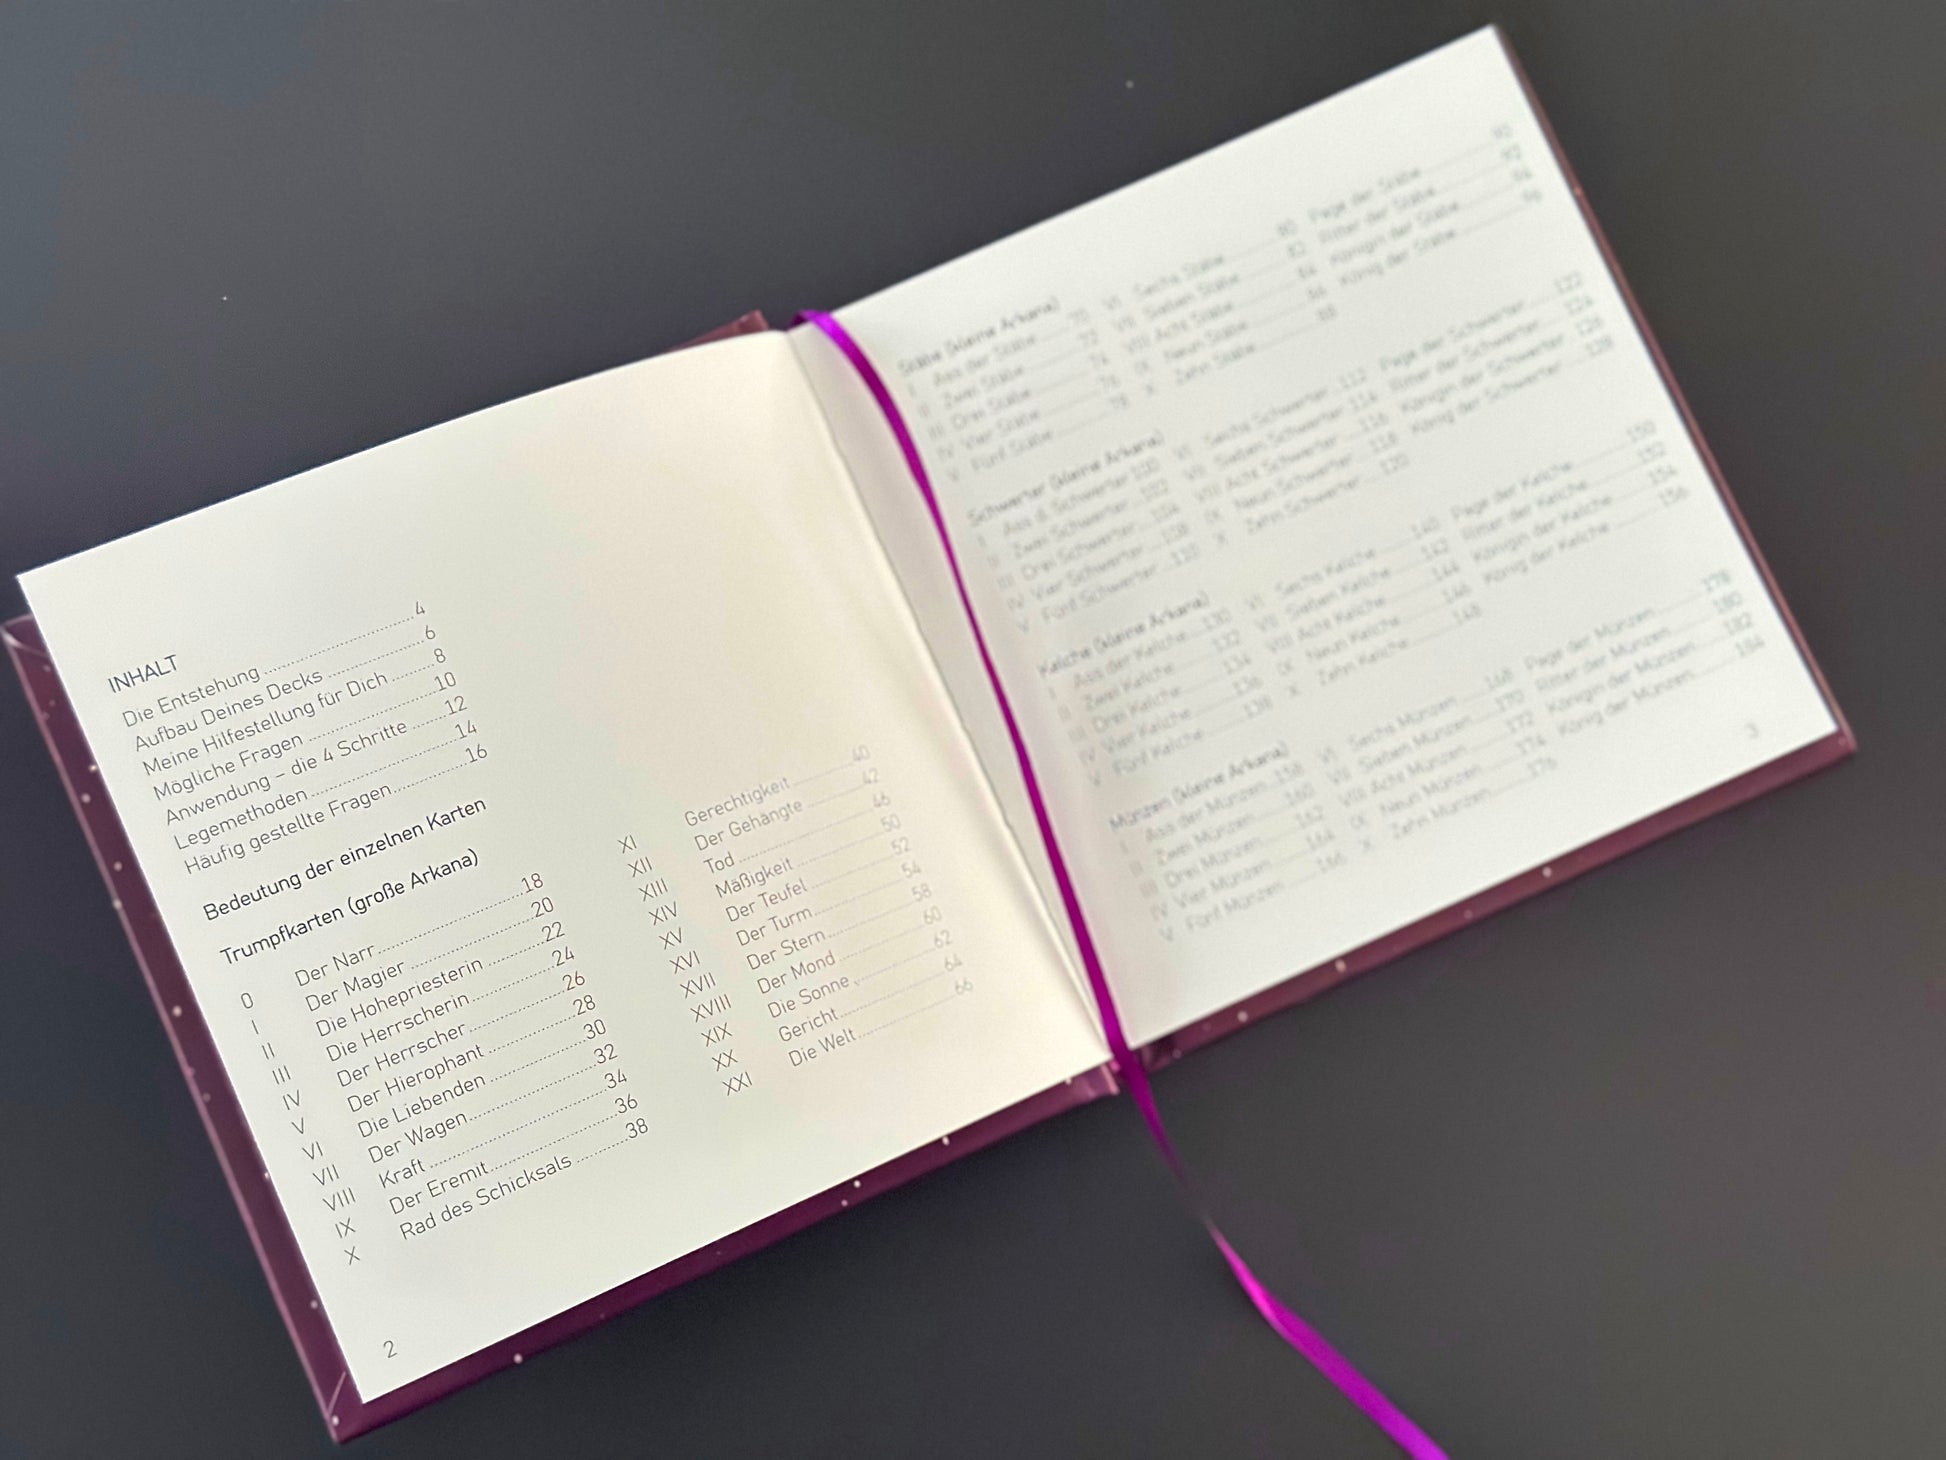 INHALT
Die Entstehung ........................ 4
Aufbau Deines Decks ................ 6
Meine Hilfestellung für Dich ...... 8
Mögliche Fragen ..................... 10
Anwendung – die 4 Schritte ....... 12
Legemethoden ........................ 14
Häufig gestellte Fragen ............. 16
Bedeutung der einzelnen Karten
Trumpfkarten (große Arkana)
0 Der Narr ........................ 18
I Der Magier ..................... 20
II Die Hohepriesterin ........... 22
III Die Herrscherin .............. 24
IV Der Herrscher ................ 26
V Der Hierophant ............... 28
VI Die Liebenden ................ 30
VII Der Wagen .................... 32
VIII Kraft ........................... 34
IX Der Eremit ..................... 36
X Rad des Schicksals .......... 38
XI Gerechtigkeit ............ 40
XII Der Gehängte ........... 42
XIII Tod ........................ 46
XIV Mäßigkeit ................ 50
XV Der Teufel ............... 52
XVI Der Turm ................. 54
XVII Der Stern ................ 58
XVIII Der Mond ................ 60
XIX Die Sonne ................ 62
XX Gericht .................... 64
XXI Die Welt .................. 66
2
Stäbe (kleine Arkana)
I Ass der Stäbe ....... 70
II Zwei Stäbe ........... 72
III Drei Stäbe ........... 74
IV Vier Stäbe ........... 76
V Fünf Stäbe ........... 78
VI Sechs Stäbe ......... 80
VII Sieben Stäbe ........ 82
VIII Acht Stäbe ........... 84
IX Neun Stäbe .......... 86
X Zehn Stäbe .......... 88
Page der Stäbe ......... 90
Ritter der Stäbe ........ 92
Königin der Stäbe ...... 94
König der Stäbe ........ 96
Schwerter (kleine Arkana)
I Ass d. Schwerter 100
II Zwei Schwerter ... 102
III Drei Schwerter ... 104
IV Vier Schwerter ... 108
V Fünf Schwerter ... 110
VI Sechs Schwerter ... 112
VII Sieben Schwerter .. 114
VIII Acht Schwerter .... 116
IX Neun Schwerter .... 118
X Zehn Schwerter .... 120
Page der Schwerter ...... 122
Ritter der Schwerter ..... 124
Königin der Schwerter ... 126
König der Schwerter ..... 128
Kelche (kleine Arkana)
I Ass der Kelche ... 130
II Zwei Kelche ....... 132
III Drei Kelche ....... 134
IV Vier Kelche ....... 136
V Fünf Kelche ....... 138
VI Sechs Kelche ...... 140
VII Sieben Kelche ..... 142
VIII Acht Kelche ....... 144
IX Neun Kelche ...... 146
X Zehn Kelche ....... 148
Page der Kelche ........ 150
Ritter der Kelche ....... 152
Königin der Kelche ..... 154
König der Kelche ....... 156
Münzen (kleine Arkana)
I Ass der Münzen .. 158
II Zwei Münzen ..... 160
III Drei Münzen ...... 162
IV Vier Münzen ...... 164
V Fünf Münzen ...... 166
VI Sechs Münzen ..... 168
VII Sieben Münzen .... 170
VIII Acht Münzen ...... 172
IX Neun Münzen ..... 174
X Zehn Münzen ...... 176
Page der Münzen ....... 178
Ritter der Münzen ...... 180
Königin der Münzen .... 182
König der Münzen ...... 184
3